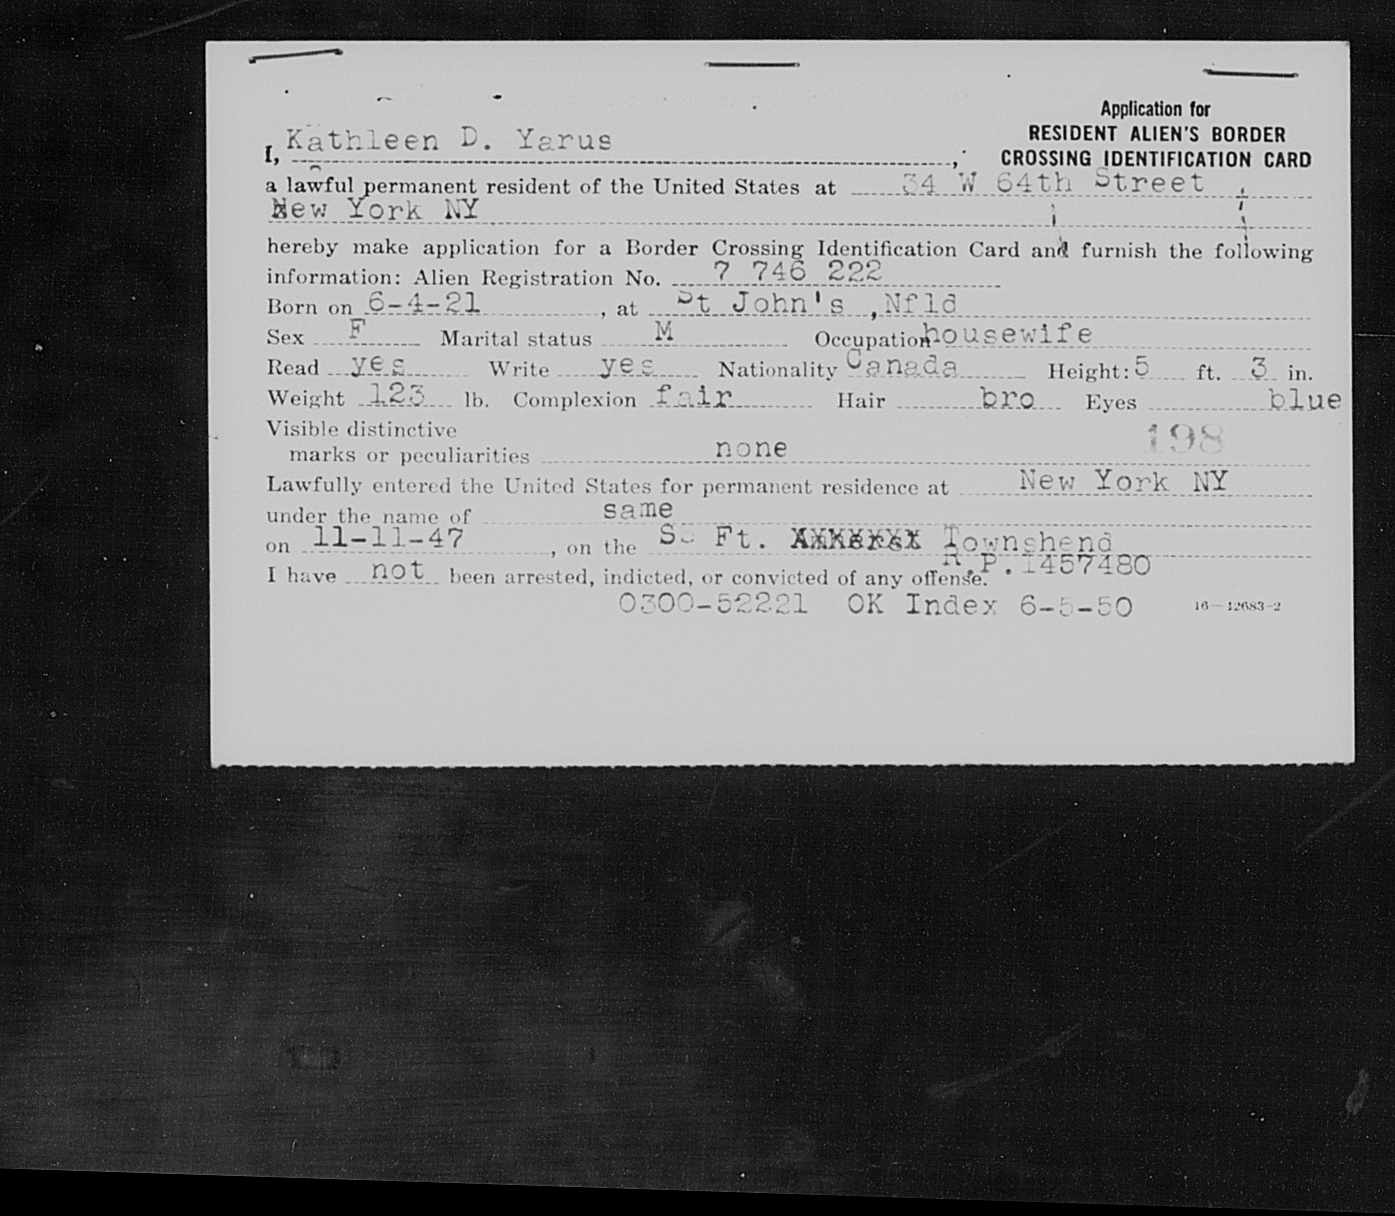 Application for
RESIDENT ALIEN'S BORDER
CROSSING IDENTIFICATION CARD
I, Kathleen D. Yarus ,
a lawful permanent resident of the United States at 34 W 64th Street ,
New York NY
hereby make application for a Border Crossing Identification Card and furnish the following
information: Alien Registration No. 7 746 222
Born on 6-4-21 , at St John's ,Nfld
Sex F Marital status M Occupation housewife
Read yes Write yes Nationality Canada Height: 5 ft. 3 in.
Weight 123 lb. Complexion fair Hair bro Eyes blue
Visible distinctive
marks or peculiarities none 198
Lawfully entered the United States for permanent residence at New York NY
under the name of same
on 11-11-47 , on the SS Ft. Townshend
R.P.1457480
I have not been arrested, indicted, or convicted of any offense.
0300-52221 OK Index 6-5-50 16—12683-2